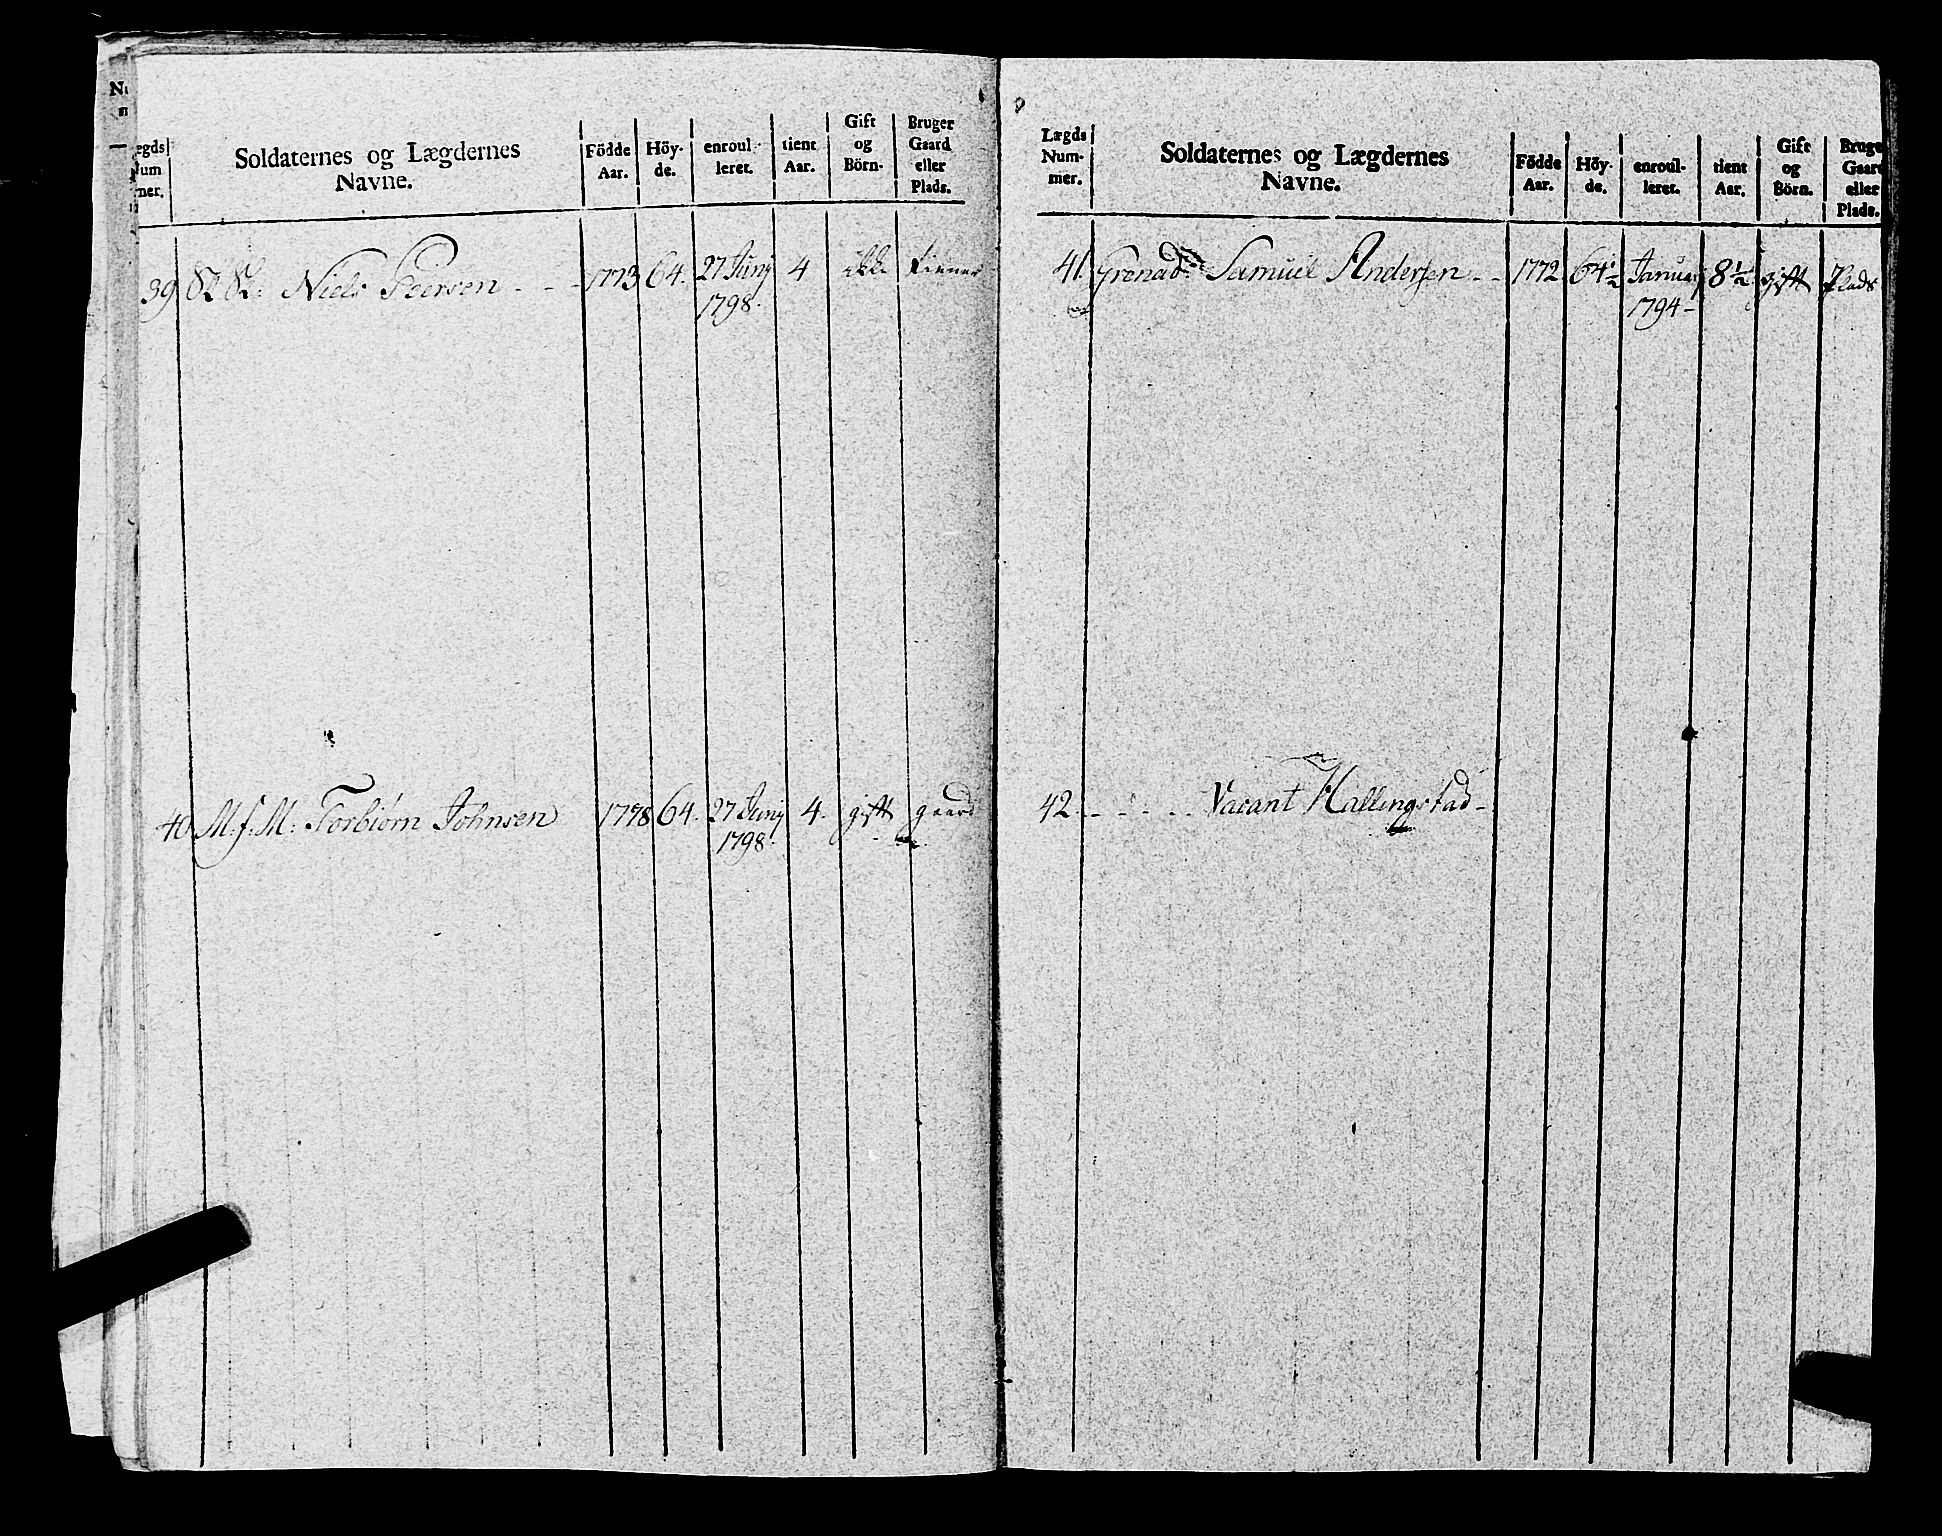 Nu
m
egds
um
ner.
Soldaternes og Lægdernes
Navne.
Födde
Aar.
Höy-
de.
enroul-
leret.
tient
Aar.
Gift
og
Börn-
Bruger
Gaard
eller
Plads.
39 Niels Peersen - - - 1773 64. 27 Junj 4 ikke tienner
1798.
40 M. f. M: Torbiørn Johnsen 1778 64. 27 Junj 4. gift gaard
1798.
Lægds
Num-
mer.
Soldaternes og Lægdernes
Navne.
Födde
Aar.
Höy-
de.
enroul-
leret.
tient
Aar.
Gift
og
Börn.
Bruge
Gaard
eller
Plads.
41. Grenad: Samuel Andersen - - 1772 64½ Januarj 8½ gift Plads
1794 -
42. - - - - Vacant Hallingstad -